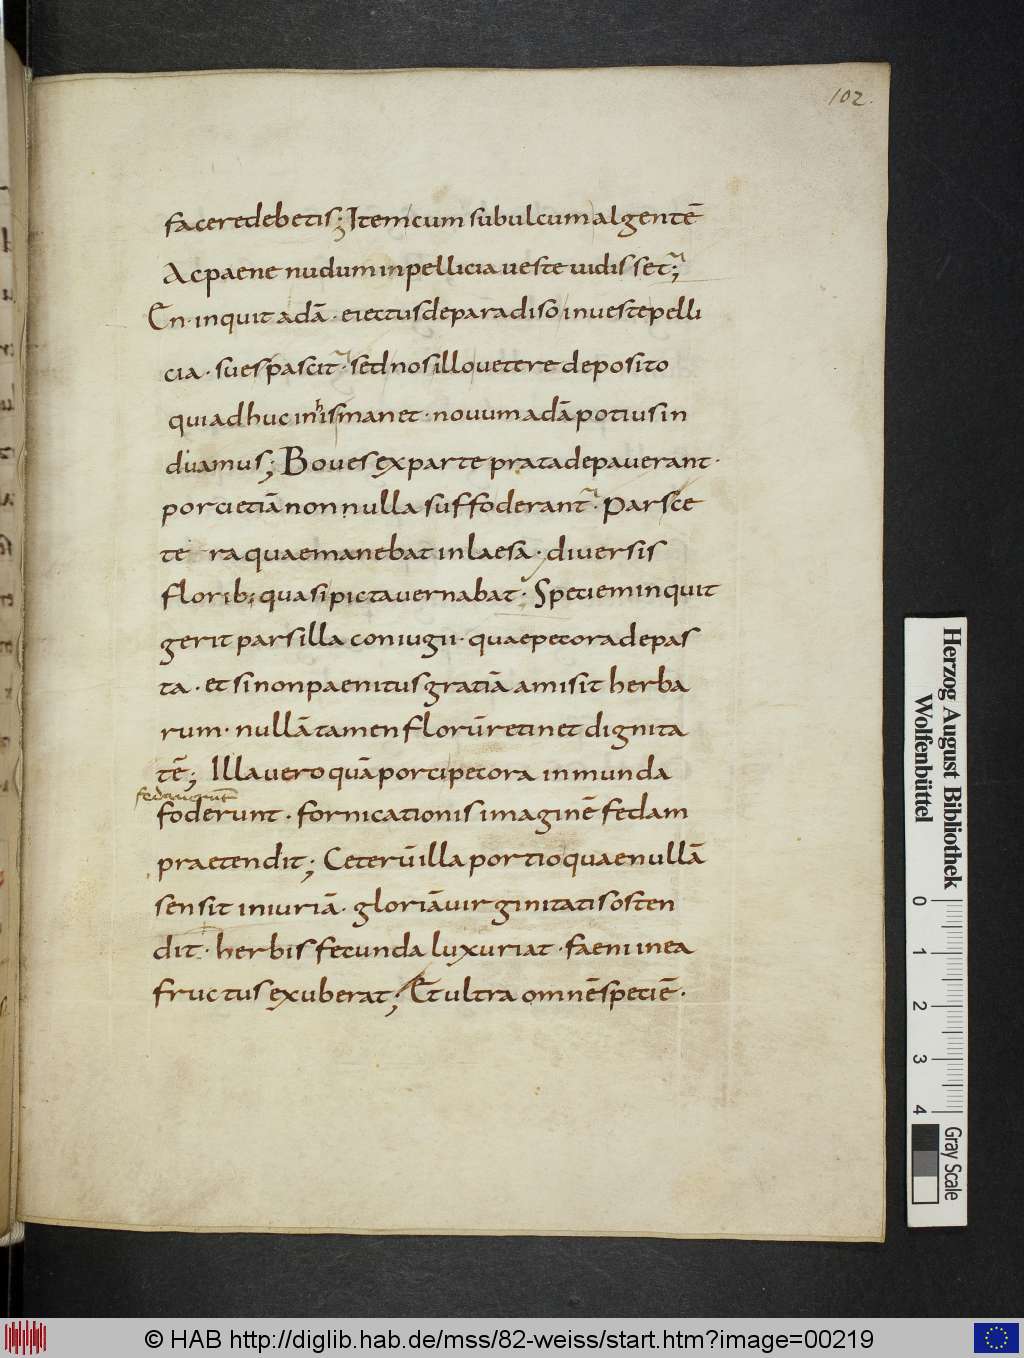 102.
faceredebetis; Item cum subulcum algentē
Ac paene nudum in pellicia ueste uidisset;
En · inquit adā · eiectus de paradiso in ueste pelli
cia · sues pascit · sed nos illo uetere deposito
qui adhuc in his manet · nouum adā potius in
duamus; Boues ex parte prata depauerant ·
porci etiā non nulla suffoderant · Pars ce
te ra quae manebat inlaesa · diversis
florib; quasi picta uernabat · Speciem inquit
gerit pars illa coniugii · quae pecora depas
ta · et si non paenitus gratiā amisit herba
rum · nullā tamen florū retinet dignita
tē; Illa uero quā porci pecora inmunda
foderunt · fornicationis imaginē fedam
praetendit; Ceterū illa portio quae nullā
sensit iniuriā · gloriā uirginitatis osten
dit · herbis fecunda luxuriat · faeni in ea
fructus exuberat; Et ultra omnē speciē ·
Herzog August Bibliothek
Wolfenbüttel
0 1 2 3 4
Gray Scale
© HAB http://diglib.hab.de/mss/82-weiss/start.htm?image=00219